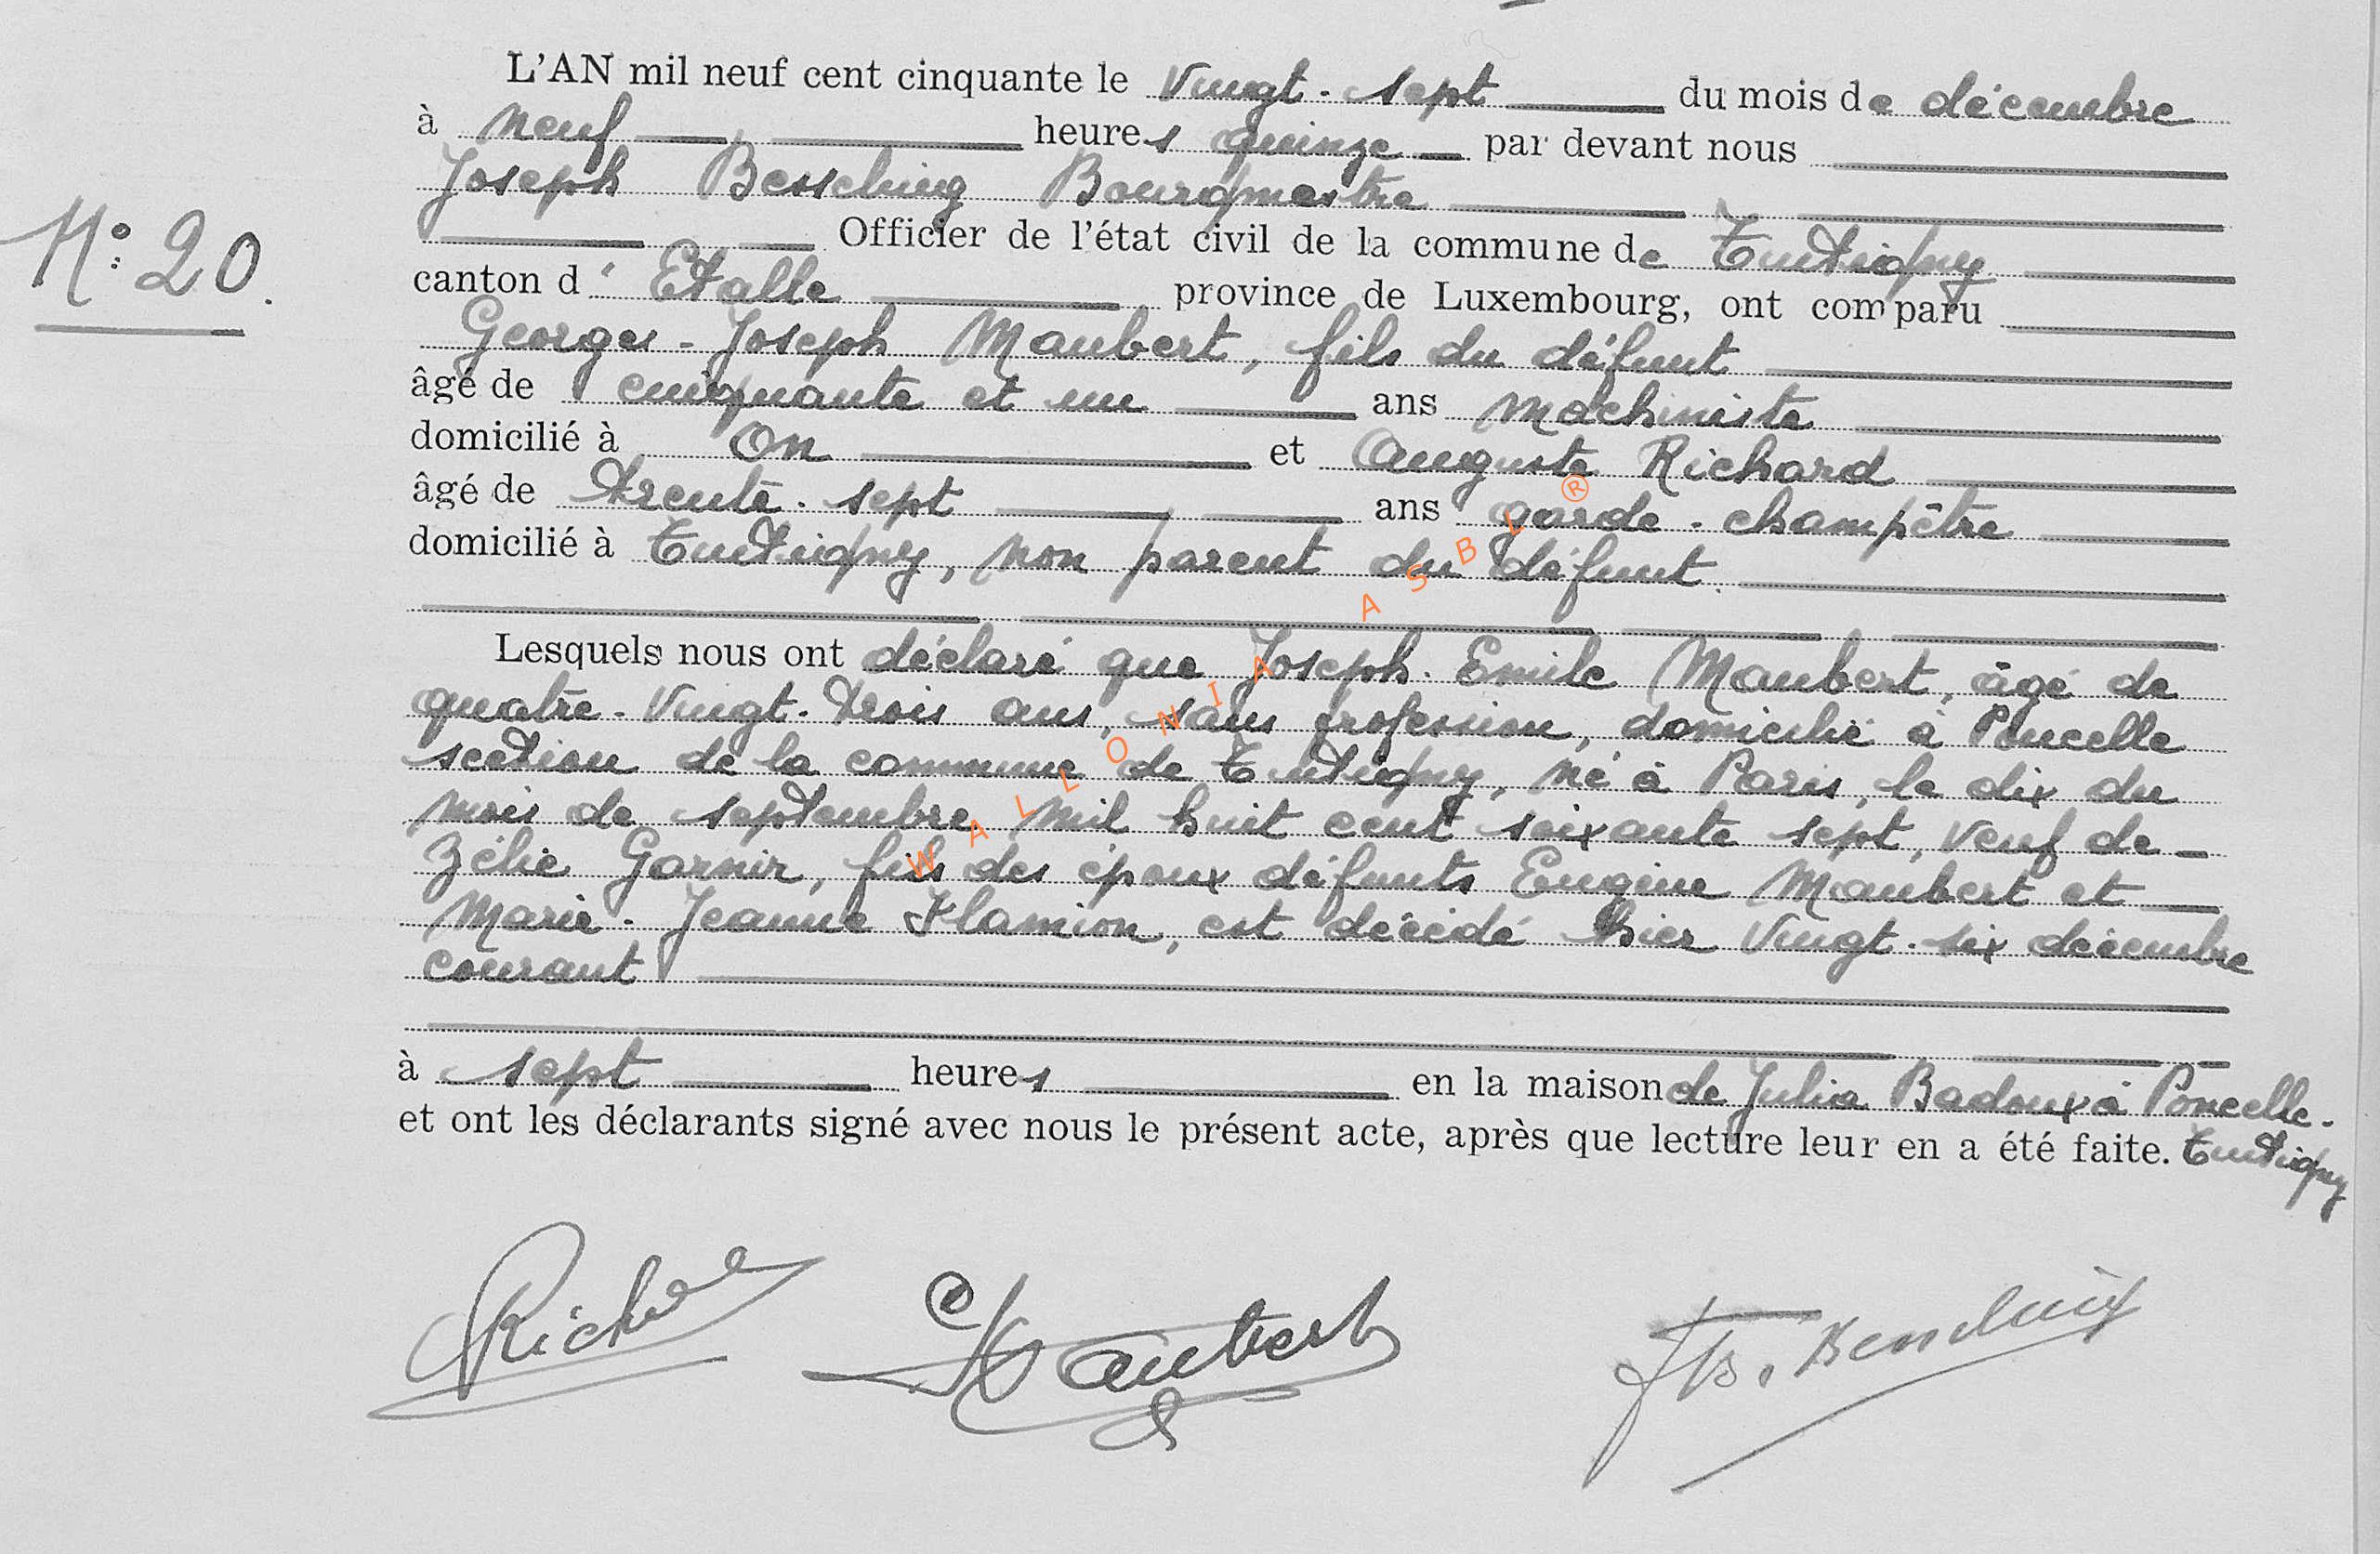 L'AN mil neuf cent cinquante le vingt-sept du mois de décembre
à neuf heures quinze par devant nous
Joseph Bessching Bourgmestre
Officier de l'état civil de la commune de Tintigny
N° 20.
canton d'Etalle province de Luxembourg, ont comparu
Georges-Joseph Maubert, fils du défunt
âgé de cinquante et un ans machiniste
domicilié à On et Auguste Richard
âgé de trente-sept ans garde-champêtre
domicilié à Tintigny, non parent du défunt.
Lesquels nous ont déclaré que Joseph-Emile Maubert, âgé de
quatre-vingt-trois ans, sans profession, domicilié à Poncelle
section de la commune de Tintigny, né à Paris, le dix du
mois de septembre mil huit cent soixante sept, veuf de
Zélie Garnir, fils des époux défunts Eugène Maubert et
Marie-Jeanne Flamion, est décédé hier vingt-six décembre
courant
à sept heures en la maison de Julia Badoux à Poncelle-
et ont les déclarants signé avec nous le présent acte, après que lecture leur en a été faite. Tintigny
Richard Maubert
WALLONIA ASBL ®